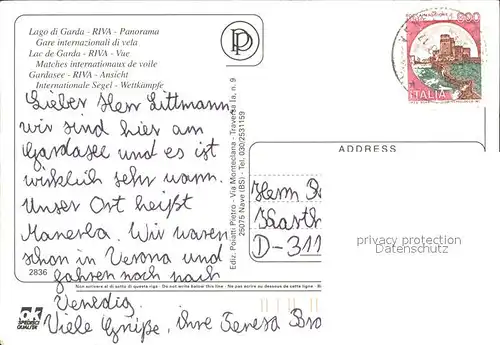 Lago di Garda - RIVA - Panorama
Gare internazionali di vela
Lac de Garda - RIVA - Vue
Matches internationaux de voile
Gardasee - RIVA - Ansicht
Internationale Segel - Wettkämpfe
Lieber Herr Littmann,
wir sind hier am
Gardasee und es ist
wirklich sehr warm.
Unser Ort heißt
Manerba. Wir waren
schon in Verona und
fahren noch nach
Venedig.
Viele Grüße, ihre Teresa
2836
Non scrivere al di sotto di questa riga - Do not write below this line - Ne pas écrire au dessous de cette ligne
SPEDISCI
QUALITÀ
Ediz. Poiatti Pietro - Via Monteclana - Traversa Ia, n. 9
25075 Nave (BS) - Tel. 030/2531159
P
600
ITALIA
ADDRESS
Herrn
D-311
privacy protection
Datenschutz